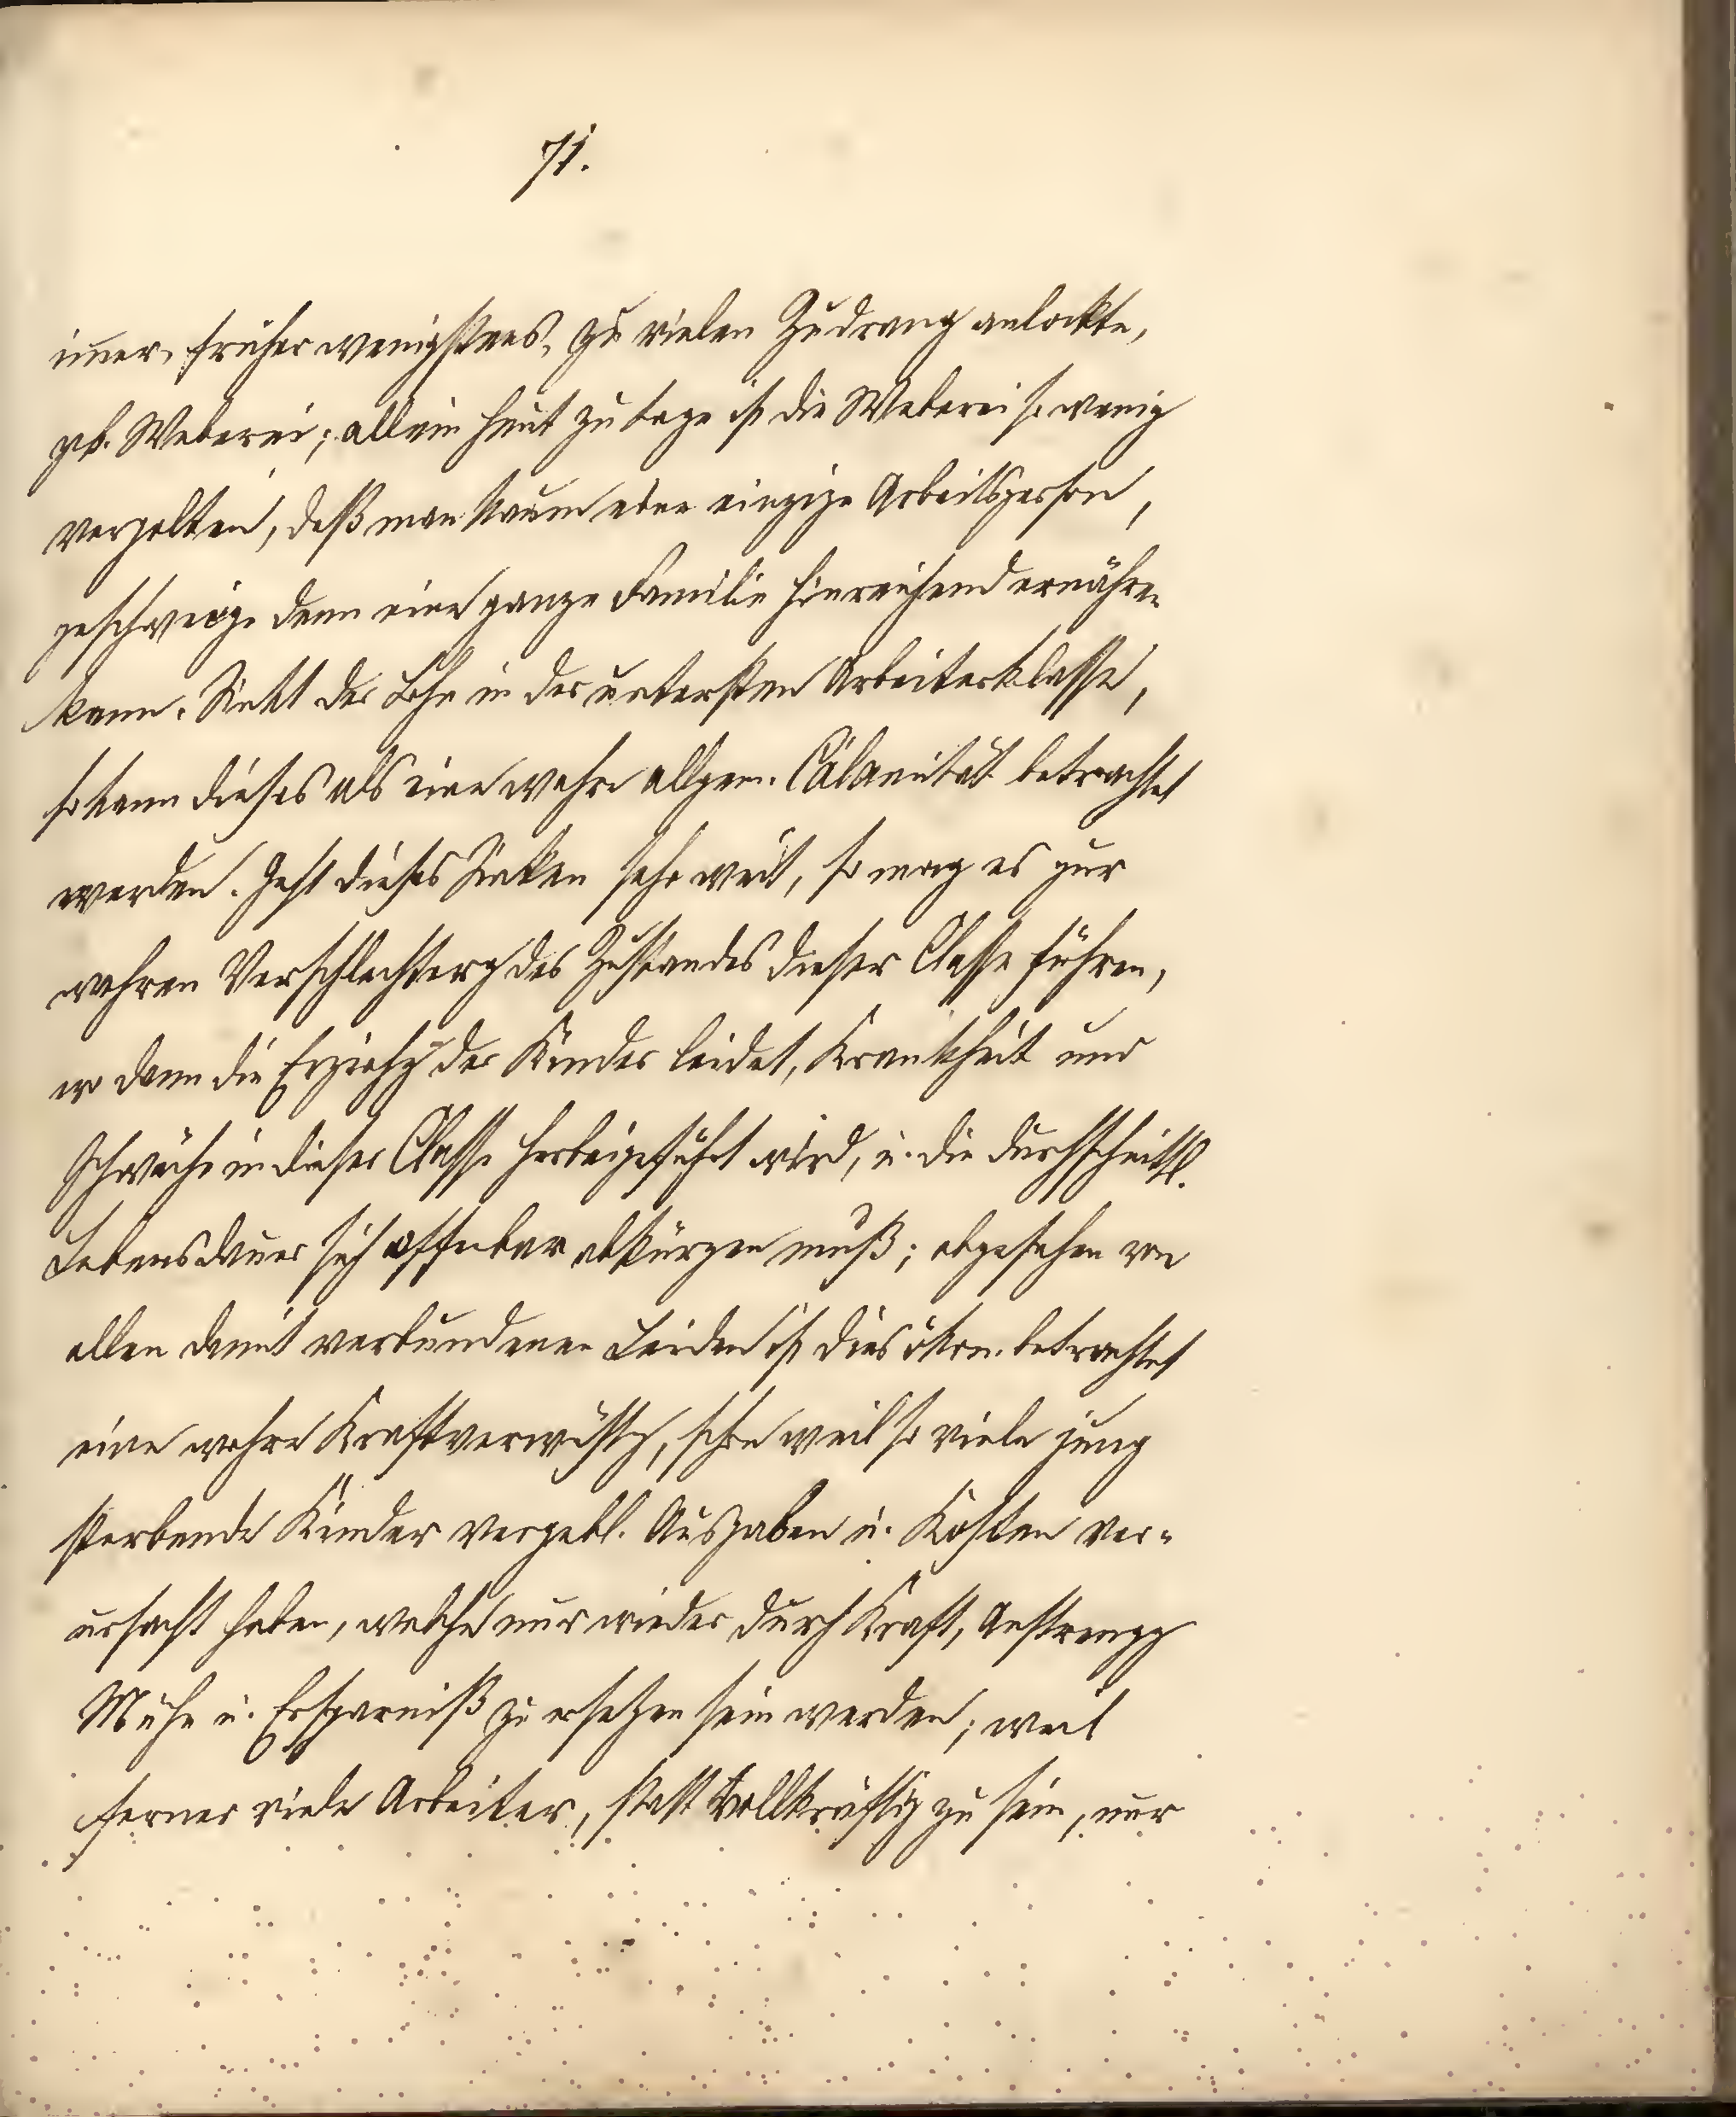 71.
im̅er, früher wenigstens, zu vielen Zudrang anlockte,
zb. Weberei; allein heut zu tage ist die Weberei so wenig
vergolten, daß man kaum eine einzige Arbeitsperson,
geschweige denn eine ganze Familie hinreichend ernähren
kann. Sinkt der Lohn in der untersten Arbeiterklasse,
so kann dieses als eine wahre allgem. Calamität betrachtet
werden. Geht dieses Sinken sehr weit, so mag es zur
wahren Verschlechterg des Zustandes dieser Classe führen,
wo dann die Erziehg der Kinder leidet, Krankheit und
Schwäche in dieser Classe herbeigeführt wird, u. die durchschnittl.
Lebensdauer sich offenbar abkürzen muß; abgesehen von
allen damit verbundenen Leiden ist dies ökon. betrachtet
eine wahre Kraftverwüstg, schon weil so viele jung
sterbende Kinder vergebl. Ausgaben u. Kosten ver-
ursacht haben, welche nur wieder durch Kraft, Anstrengg
Mühe u. Ersparniß zu ersetzen sein werden; weil
ferner viele Arbeiter, statt vollkräftig zu sein, nur